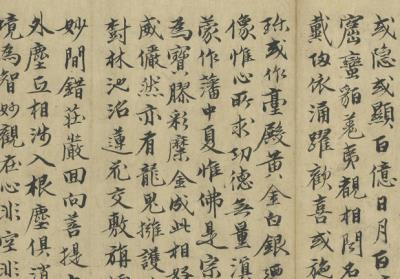 或隐或顯百億日月百
蠻貊羗夷觀相問名
戴依涌躍歡喜或施
珎或作臺殿黃金白銀
像惟心所求功德無量滇
蒙作藩中夏惟佛是宗
為寶膠彩縻金成此相好
威儼然亦有龍鬼擁護
對林池沼蓮花交敷旃
妙間錯莊嚴回向菩提
外塵互相涉入根塵俱消
境為智妙觀在心非空非